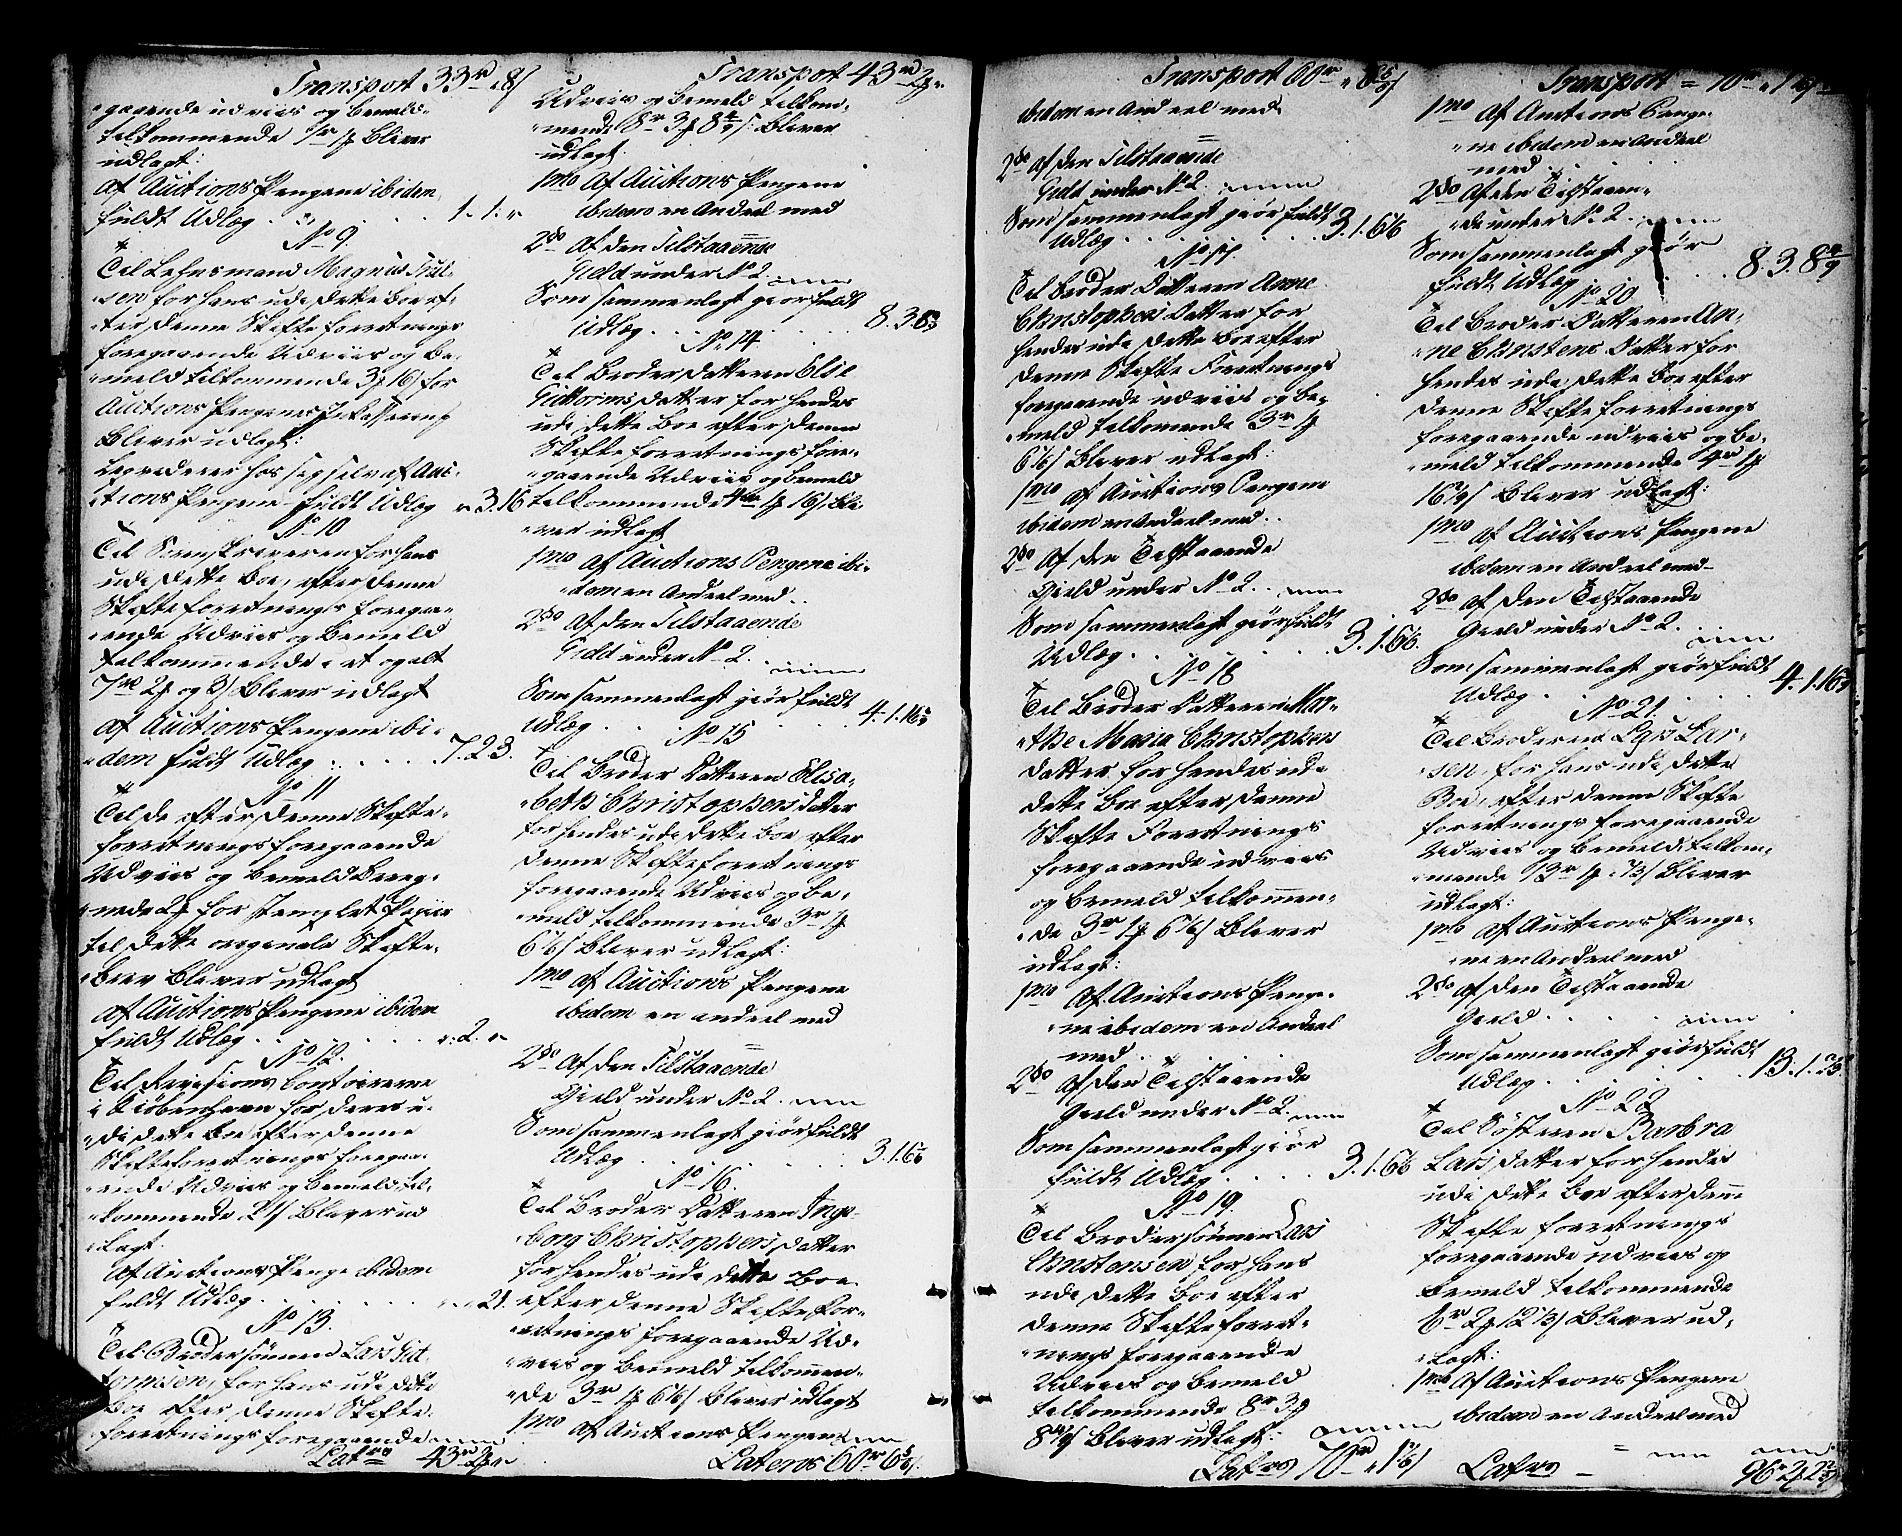 Transport 33 rd " 8 s
gaaende udviis og bemeld-
tilkommende 1 rd 1 ƶ bliver
udlagt:
af Auctions Pengene ibidem
fuldt Udlæg . . . 1. 1. "
No 9
Til Lehnsmand Magnus Trul-
sen for hans udi dette Boe ef-
ter denne Skifte forretnings
foregaaende Udviis og be-
meld tilkommende 3 ƶ 16 s for
Auctions Pengenes Incassering
bliver udlagt:
hos sig selv af Auc-
tions Pengene fuldt Udlæg " 3. 16
No 10
Til Sorenskriveren for hans
udi dette Boe, efter denne
Skifte forretnings foregaa-
ende Udviis og bemeld
tilkommende i et og alt
7 rd 2 ƶ og 3 s bliver udlagt
af Auctions Pengene ibi-
dem fuldt Udlæg . . . 7. 2. 3.
No 11
Til de efter denne Skifte-
forretnings foregaaende
Udviis og bemeld bereg-
nede 2 ƶ for stemplet Papiir
til dette originale Skifte-
brev bliver udlagt
af Auctions Pengene ibidem
fuldt Udlæg . . . ": 2. "
No 12.
Til Revisions Contoirerne
i Kiöbenhavn for deres u-
di dette Boe efter denne
Skifteforretnings foregaa-
ende Udviis og bemeld til-
kommende 21 s bliver ud-
lagt.
Af Auctions Penge ibidem
fuldt Udlæg . . . " " 21.
No 13.
Til Brodersönnen Lars Gut-
tormsen, for hans udi dette
Boe efter denne Skifte-
forretnings foregaaende
Latus 43 rd 2 ƶ "
Transport 43 rd 2 ƶ "
Udviis og bemeld tilkom-
mende 8 rd 3 ƶ 8 4/9 s: bliver
udlagt.
1mo Af Auctions Pengene
ibidem en Andeel med
2do Af den Tilstaaende
Gield under No 2.
Som sammenlagt giör fuldt
Udlæg . . . 8. 3. 8
No 14
Til Broder Datteren Else
Guttorms datter for hendes
udi dette Boe efter denne
Skifte forretnings fore-
gaaende Udviis og bemeld
tilkommende 4 rd 1 ƶ 16 s bli-
ver udlagt
1mo af Auctions Pengene ibi-
dem en Andeel med . .
2do Af den Tilstaaende
Gield under No 2.
Som sammenlagt giör fuldt
Udlæg . . . 4. 1. 16
No 15
Til Broder Datteren Elisa-
beth Christophers datter
for hendes udi dette Boe efter
denne Skifteforretnings
foregaaende Udviis og be-
meld tilkommende 3 rd 1 ƶ
6 1/6 s bliver udlagt:
1mo af Auctions Pengene
ibidem en andeel med
2do Af den Tilstaaende
Gield under No 2.
Som sammenlagt giör fuldt
Udlæg . . . 3. 1. 6
No 16.
Til Broder Datteren Inge-
borg Christophers datter
for hendes udi dette Boe
efter denne Skifte for-
retnings foregaaende Ud-
viis og bemeld tilkommen-
de 3 rd 1 ƶ 6 1/6 s bliver udlagt
1mo af Auctions Pengene
Lateros 60 rd 6 s
Transport 60 rd " 6 s
ibidem en Andeel med
2do af den Tilstaaende
Gield under No 2.
Som sammenlagt giör fuldt
Udlæg . . . 3. 1. 6 1/6
No 17.
Til Broder Datteren Anne
Christophers Datter for
hendes udi dette Boe efter
denne Skifte Forretnings
foregaaende udviis og be-
meld tilkomende 3 rd 1 ƶ
6 1/6 s bliver udlagt:
1mo af Auctions Pengene
ibidem en Andeel med . .
2do Af den Tilstaaende
Gield under No 2.
Som sammenlagt giör fuldt
Udlæg . . . 3. 1. 6 1/6.
No 18
Til Broder Datteren Mar-
the Maria Christophers
datter for hendes udi
dette Boe efter denne
Skifte Forretnings
foregaaende udviis
og bemeld tilkommen-
de 3 rd 1 ƶ 6 1/6 s bliver
udlagt:
1mo Af Auctions Penge-
ne ibidem en Andeel
med . .
2do Af den Tilstaaende
Gield under No 2.
Som sammenlagt giör
fuldt Udlæg . . . 3. 1. 6 1/6
No 19.
Til Brodersönnen Lars
Christensen for hans
udi dette Boe efter
denne Skifte forret-
nings foregaaende
Udviis og bemeld
tilkommende 8 rd 3 ƶ
8 4/9 s bliver udlagt:
Latus 70 rd " 1 s
Transport = 70 rd " 1
1mo Af Auctions Penge-
ne ibidem en Andeel
med
2do Af den Tilstaaen-
de under No 2.
Som sammenlagt giör
fuldt Udlæg . . . 8. 3. 8 4/9
No 20
Til Broder Datteren An-
ne Christens Datter for
hendes udi dette Boe efter
denne Skifte forretnings
foregaaende udviis og be-
meld tilkommende 4 rd 1 ƶ
16 2/9 s bliver udlagt:
1mo af Auctions Pengene
ibidem en Andeel med
2do af den Tilstaaende
Gield under No 2.
Som sammenlagt giör fuldt
Udlæg . . . 4. 1. 16
No 21.
Til Broderen Lars Lar-
sen for hans udi dette
Boe, efter denne Skifte
forretnings foregaaende
Udviis og bemeld tilkom-
mende 13 rd 1 ƶ bliver
udlagt:
1mo af Auctions Penge-
ne en Andeel med
2do af den Tilstaaende
Gield . . .
Som sammenlagt giör fuldt
Udlæg . . . 13. 1.
No 22
Til Sösteren Barbra
Lars datter for hendes
udi dette Boe efter denne
Skifte forretnings
foregaaende udviis og
bemeld tilkommende
6 rd 2 ƶ 12 1/3 s bliver ud-
lagt:
1mo Af Auctions Pengene
ibidem en Andeel med
Latus 96 rd 2 ƶ 2